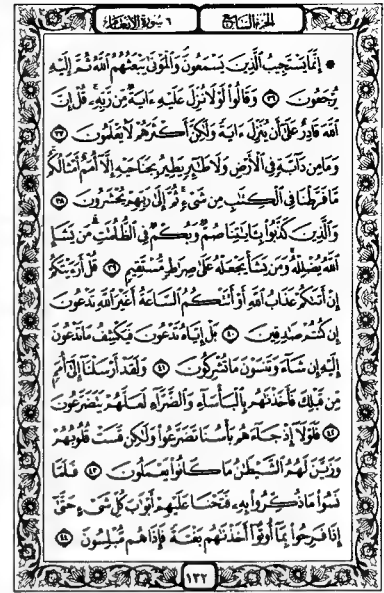 الجزء السابع ٦ سورة الأنعام
۞ إِنَّمَا يَسْتَجِيبُ الَّذِينَ يَسْمَعُونَ وَالْمَوْتَىٰ يَبْعَثُهُمُ اللَّهُ ثُمَّ إِلَيْهِ
يُرْجَعُونَ ٣٦ وَقَالُوا لَوْلَا نُزِّلَ عَلَيْهِ ءَايَةٌ مِّن رَّبِّهِ قُلْ إِنَّ
اللَّهَ قَادِرٌ عَلَىٰ أَن يُنَزِّلَ ءَايَةً وَلَٰكِنَّ أَكْثَرَهُمْ لَا يَعْلَمُونَ ٣٧
وَمَا مِن دَابَّةٍ فِي الْأَرْضِ وَلَا طَائِرٍ يَطِيرُ بِجَنَاحَيْهِ إِلَّا أُمَمٌ أَمْثَالُكُم
مَّا فَرَّطْنَا فِي الْكِتَابِ مِن شَيْءٍ ثُمَّ إِلَىٰ رَبِّهِمْ يُحْشَرُونَ ٣٨
وَالَّذِينَ كَذَّبُوا بِآيَاتِنَا صُمٌّ وَبُكْمٌ فِي الظُّلُمَاتِ مَن يَشَإِ
اللَّهُ يُضْلِلْهُ وَمَن يَشَأْ يَجْعَلْهُ عَلَىٰ صِرَاطٍ مُّسْتَقِيمٍ ٣٩ قُلْ أَرَءَيْتَكُمْ
إِنْ أَتَاكُمْ عَذَابُ اللَّهِ أَوْ أَتَتْكُمُ السَّاعَةُ أَغَيْرَ اللَّهِ تَدْعُونَ
إِن كُنتُمْ صَادِقِينَ ٤٠ بَلْ إِيَّاهُ تَدْعُونَ فَيَكْشِفُ مَا تَدْعُونَ
إِلَيْهِ إِن شَاءَ وَتَنسَوْنَ مَا تُشْرِكُونَ ٤١ وَلَقَدْ أَرْسَلْنَا إِلَىٰ أُمَمٍ
مِّن قَبْلِكَ فَأَخَذْنَاهُم بِالْبَأْسَاءِ وَالضَّرَّاءِ لَعَلَّهُمْ يَتَضَرَّعُونَ
٤٢ فَلَوْلَا إِذْ جَاءَهُم بَأْسُنَا تَضَرَّعُوا وَلَٰكِن قَسَتْ قُلُوبُهُمْ
وَزَيَّنَ لَهُمُ الشَّيْطَانُ مَا كَانُوا يَعْمَلُونَ ٤٣ فَلَمَّا
نَسُوا مَا ذُكِّرُوا بِهِ فَتَحْنَا عَلَيْهِمْ أَبْوَابَ كُلِّ شَيْءٍ حَتَّىٰ
إِذَا فَرِحُوا بِمَا أُوتُوا أَخَذْنَاهُم بَغْتَةً فَإِذَا هُم مُّبْلِسُونَ ٤٤
١٣٢